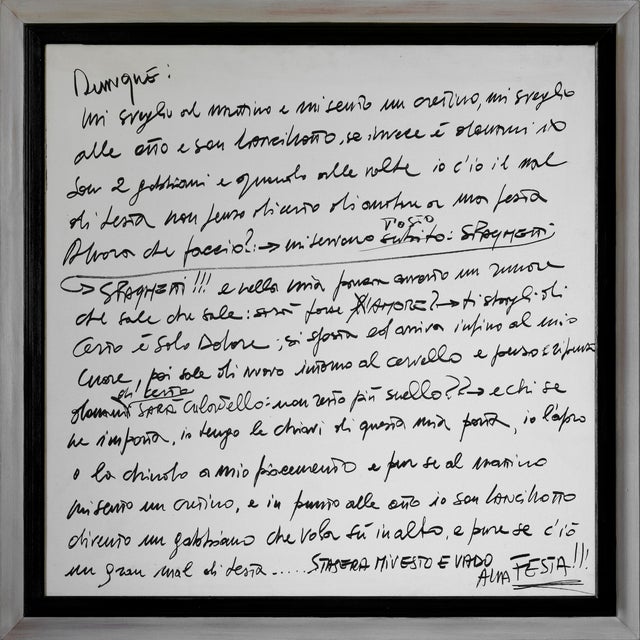 Dunque:
mi sveglio al mattino e mi sento un cretino, mi sveglio
alle otto e son Lancillotto, se invece è domani io
son 2 gabbiani e quando alle volte io c'iò il mal
di testa non penso di certo di andare a una festa
Allora che faccio?: → mi servono subito: SPAGHETTI
TOSTO
→ SPAGHETTI!!! e nella mia panza avverto un rumore
che sale che sale: sarà forse AMORE? → ti sbagli di
certo è solo Dolore; si sposta ed arriva infino al mio
cuore, poi sale di nuovo intorno al cervello e penso
di certo
domani SARÀ : non sarò più snello?? → e chi se
ne importa, io tengo le chiavi di questa mia porta, io l'apro
o la chiudo a mio piacimento e pur se al mattino
mi sento un cretino, e in punto alle otto io son Lancillotto
divento un gabbiano che vola sù in alto, e pure se c'iò
un gran mal di testa..... STASERA MI VESTO E VADO
ALLA FESTA!!!